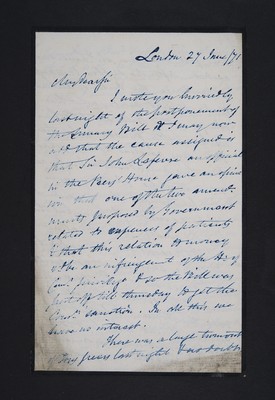 London 27 June /71
My dear Sir
I wrote you hurriedly
last night of the postponement of
the Lunacy Bill & I may now
add that the cause assigned is
that Sir John Lefevre an official
in the Peers' House gave an opin
ion that one of the two amend-
ments proposed by Government
related to expenses of patients
& that this relation to money
wd be an infringement of the Hs of
Com.s privilege & so the Bill was
put off till thursday to get the
sanction. In all this we
have no interest.
There was a large turnout
Peers last night & no doubt